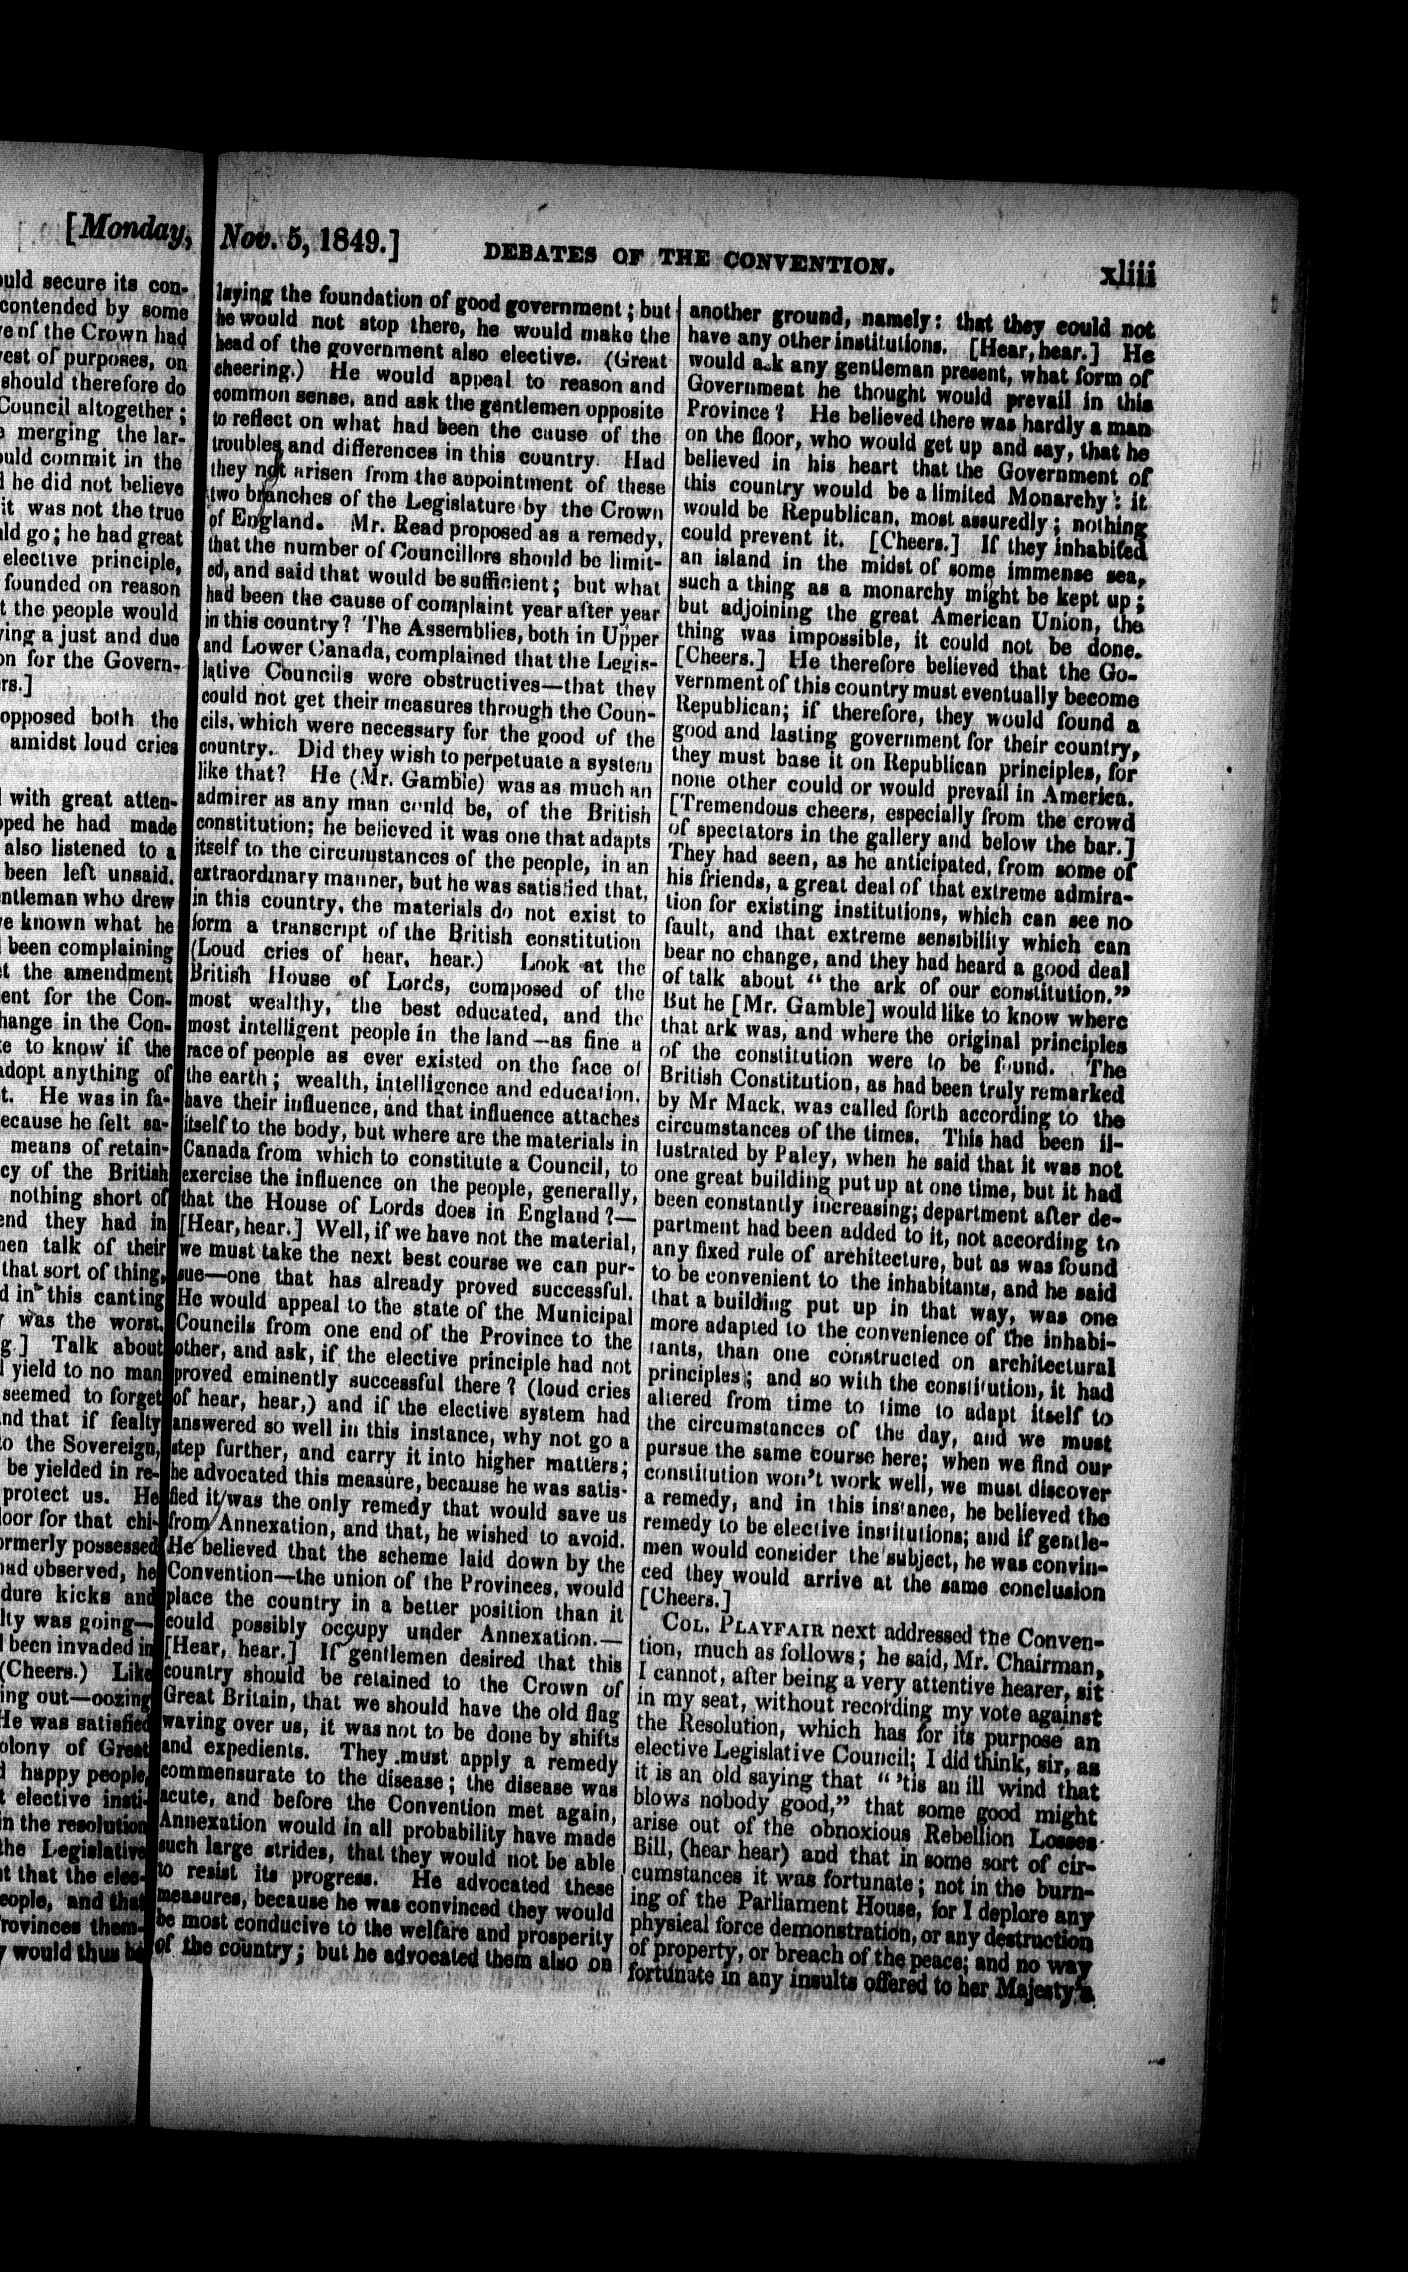 [Monday,
ould secure its con-
contended by some
e of the Crown had
est of purposes, on
should therefore do
Council altogether;
merging the lar-
ould commit in the
he did not believe
it was not the true
ld go; he had great
elective principle,
founded on reason
t the people would
ing a just and due
on for the Govern-
rs.]
opposed both the
amidst loud cries
with great atten-
ped he had made
also listened to a
been left unsaid.
ntleman who drew
e known what he
been complaining
t the amendment
ent for the Con-
hange in the Con-
e to know if the
adopt anything of
t. He was in fa-
ecause he felt sa-
means of retain-
cy of the British
nothing short of
end they had in
en talk of their
that sort of thing,
d in this canting
was the worst.
g.] Talk about
yield to no man
seemed to forget
nd that if fealty
to the Sovereign,
be yielded in re-
protect us. He
oor for that chi-
ormerly possessed
had observed, he
dure kicks and
lty was going—
been invaded in
(Cheers.) Like
ing out—oozing
He was satisfied
olony of Great
happy people,
t elective insti-
in the resolution
the Legislative
t that the elec-
eople, and that
rovinces them-
would thus be
Nov. 5, 1849.] DEBATES OF THE CONVENTION. xliii
laying the foundation of good government; but
he would not stop there, he would make the
head of the government also elective. (Great
cheering.) He would appeal to reason and
common sense, and ask the gentlemen opposite
to reflect on what had been the cause of the
troubles and differences in this country. Had
they not arisen from the appointment of these
two branches of the Legislature by the Crown
of England. Mr. Read proposed as a remedy,
that the number of Councillors should be limit-
ed, and said that would be sufficient; but what
had been the cause of complaint year after year
in this country? The Assemblies, both in Upper
and Lower Canada, complained that the Legis-
lative Councils were obstructives—that they
could not get their measures through the Coun-
cils, which were necessary for the good of the
country. Did they wish to perpetuate a system
like that? He (Mr. Gamble) was as much an
admirer as any man could be, of the British
constitution; he believed it was one that adapts
itself to the circumstances of the people, in an
extraordinary manner, but he was satisfied that,
in this country, the materials do not exist to
form a transcript of the British constitution
(Loud cries of hear, hear.) Look at the
British House of Lords, composed of the
most wealthy, the best educated, and the
most intelligent people in the land—as fine a
race of people as ever existed on the face of
the earth; wealth, intelligence and education,
have their influence, and that influence attaches
itself to the body, but where are the materials in
Canada from which to constitute a Council, to
exercise the influence on the people, generally,
that the House of Lords does in England?—
[Hear, hear.] Well, if we have not the material,
we must take the next best course we can pur-
sue—one that has already proved successful.
He would appeal to the state of the Municipal
Councils from one end of the Province to the
other, and ask, if the elective principle had not
proved eminently successful there? (loud cries
of hear, hear,) and if the elective system had
answered so well in this instance, why not go a
step further, and carry it into higher matters;
he advocated this measure, because he was satis-
fied it was the only remedy that would save us
from Annexation, and that, he wished to avoid.
He believed that the scheme laid down by the
Convention—the union of the Provinces, would
place the country in a better position than it
could possibly occupy under Annexation.—
[Hear, hear.] If gentlemen desired that this
country should be retained to the Crown of
Great Britain, that we should have the old flag
waving over us, it was not to be done by shifts
and expedients. They must apply a remedy
commensurate to the disease; the disease was
acute, and before the Convention met again,
Annexation would in all probability have made
such large strides, that they would not be able
to resist its progress. He advocated these
measures, because he was convinced they would
be most conducive to the welfare and prosperity
of the country; but he advocated them also on
another ground, namely: that they could not
have any other institutions. [Hear, hear.] He
would ask any gentleman present, what form of
Government he thought would prevail in this
Province? He believed there was hardly a man
on the floor, who would get up and say, that he
believed in his heart that the Government of
this country would be a limited Monarchy: it
would be Republican, most assuredly; nothing
could prevent it. [Cheers.] If they inhabited
an island in the midst of some immense sea,
such a thing as a monarchy might be kept up;
but adjoining the great American Union, the
thing was impossible, it could not be done.
[Cheers.] He therefore believed that the Go-
vernment of this country must eventually become
Republican; if therefore, they would found a
good and lasting government for their country,
they must base it on Republican principles, for
none other could or would prevail in America.
[Tremendous cheers, especially from the crowd
of spectators in the gallery and below the bar.]
They had seen, as he anticipated, from some of
his friends, a great deal of that extreme admira-
tion for existing institutions, which can see no
fault, and that extreme sensibility which can
bear no change, and they had heard a good deal
of talk about "the ark of our constitution."
But he [Mr. Gamble] would like to know where
that ark was, and where the original principles
of the constitution were to be found. The
British Constitution, as had been truly remarked
by Mr Mack, was called forth according to the
circumstances of the times. This had been il-
lustrated by Paley, when he said that it was not
one great building put up at one time, but it had
been constantly increasing; department after de-
partment had been added to it, not according to
any fixed rule of architecture, but as was found
to be convenient to the inhabitants, and he said
that a building put up in that way, was one
more adapted to the convenience of the inhabi-
tants, than one constructed on architectural
principles; and so with the constitution, it had
altered from time to time to adapt itself to
the circumstances of the day, and we must
pursue the same course here; when we find our
constitution won't work well, we must discover
a remedy, and in this instance, he believed the
remedy to be elective institutions; and if gentle-
men would consider the subject, he was convin-
ced they would arrive at the same conclusion
[Cheers.]
COL. PLAYFAIR next addressed the Conven-
tion, much as follows; he said, Mr. Chairman,
I cannot, after being a very attentive hearer, sit
in my seat, without recording my vote against
the Resolution, which has for its purpose an
elective Legislative Council; I did think, sir, as
it is an old saying that "'tis an ill wind that
blows nobody good," that some good might
arise out of the obnoxious Rebellion Losses
Bill, (hear hear) and that in some sort of cir-
cumstances it was fortunate; not in the burn-
ing of the Parliament House, for I deplore any
physical force demonstration, or any destruction
of property, or breach of the peace; and no way
fortunate in any insults offered to her Majesty's